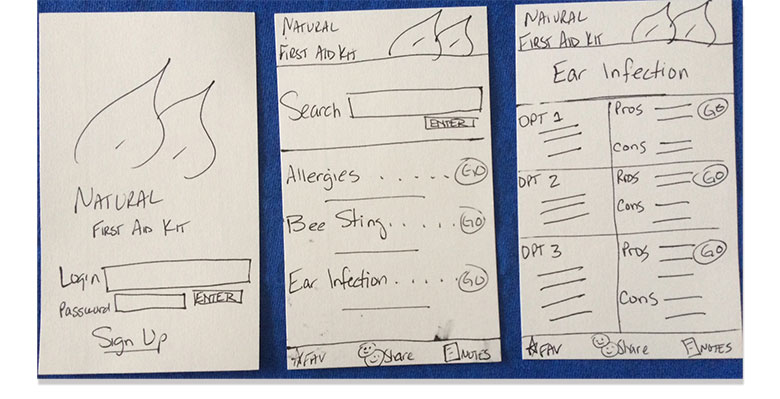 NATURAL
FIRST AID KIT
Login
Password ENTER
Sign Up
NATURAL
FIRST AID KIT
Search
ENTER
Allergies . . . . . GO
Bee Sting. . . . GO
Ear Infection . . . . . GO
FAV Share NOTES
NATURAL
FIRST AID KIT
Ear Infection
OPT 1 Pros GO
Cons
OPT 2 Pros GO
Cons
OPT 3 Pros GO
Cons
FAV Share NOTES